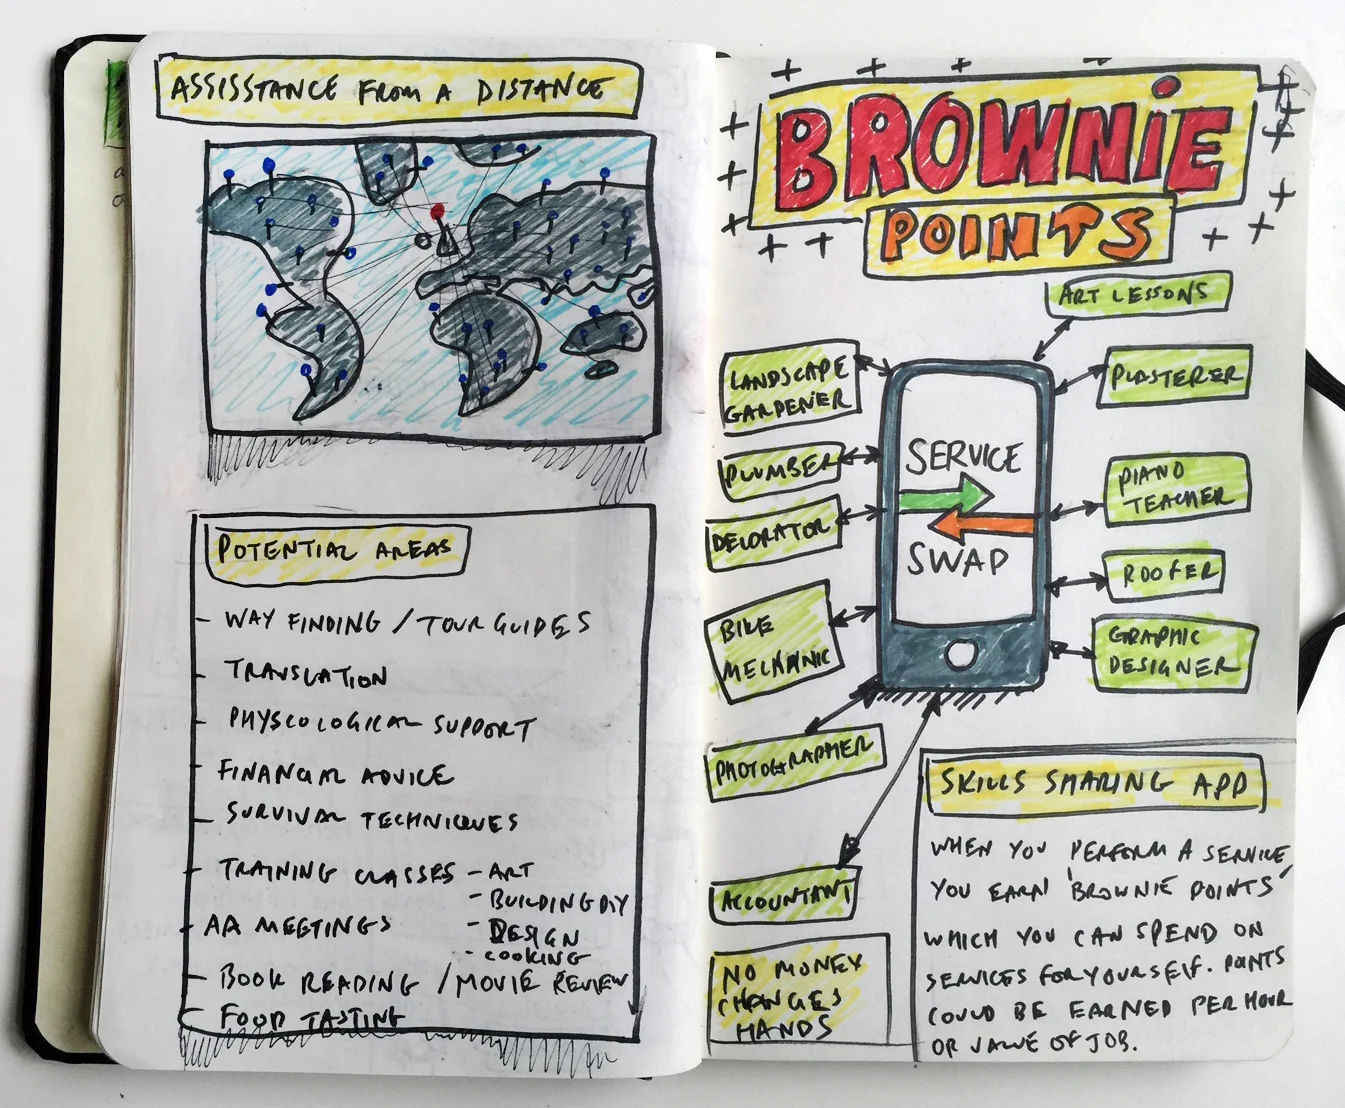 ASSISSTANCE FROM A DISTANCE
POTENTIAL AREAS
- WAY FINDING / TOUR GUIDES
- TRANSLATION
- PHYSCOLOGICAL SUPPORT
- FINANCIAL ADVICE
- SURVIVAL TECHNIQUES
- TRAINING CLASSES - ART
- BUILDING DIY
- AA MEETINGS
- DESIGN
- COOKING
- BOOK READING / MOVIE REVIEW
- FOOD TASTING
BROWNIE
POINTS
ART LESSONS
LANDSCAPE
GARDENER
PLASTERER
PLUMBER
SERVICE
SWAP
PIANO
TEACHER
DECORATOR
ROOFER
BIKE
MECHANIC
GRAPHIC
DESIGNER
PHOTOGRAPHER
ACCOUNTANT
NO MONEY
CHANGES
HANDS
SKILLS SHARING APP
WHEN YOU PERFORM A SERVICE
YOU EARN 'BROWNIE POINTS'
WHICH YOU CAN SPEND ON
SERVICES FOR YOURSELF. POINTS
COULD BE EARNED PER HOUR
OR VALUE OF JOB.